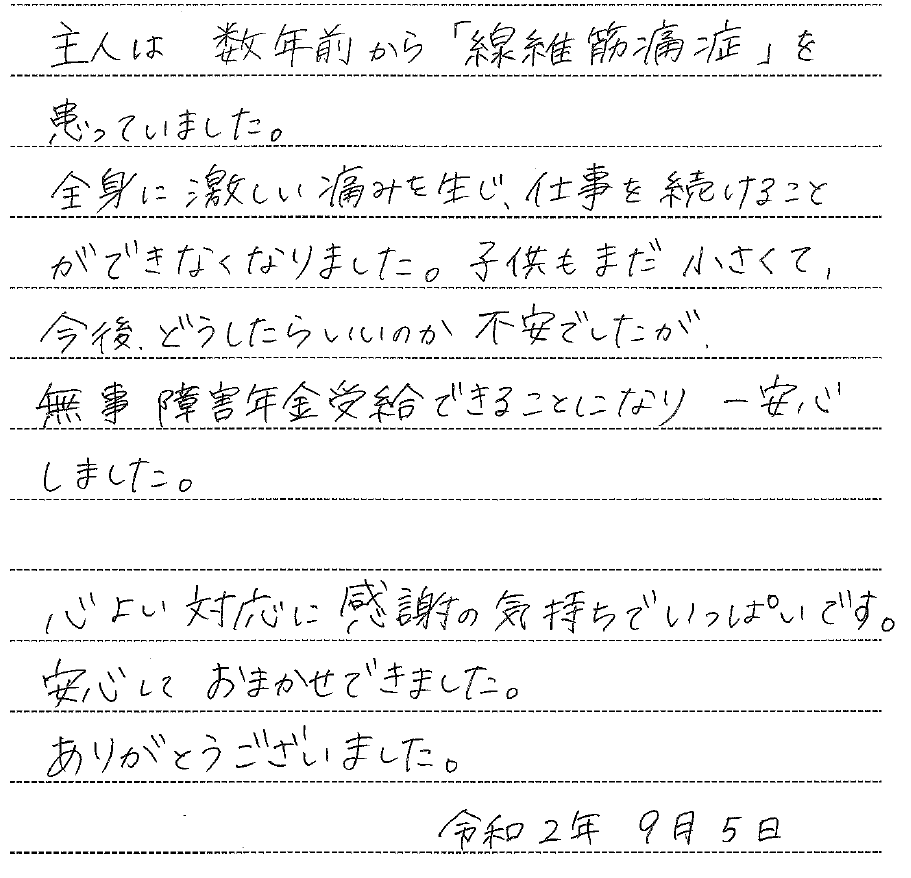 主人は 数年前から「線維筋痛症」を
患っていました。
全身に激しい痛みを生じ、仕事を続けること
ができなくなりました。子供もまだ小さくて、
今後、どうしたらいいのか 不安でしたが、
無事 障害年金受給できることになり 一安心
しました。
心よい対応に感謝の気持ちでいっぱいです。
安心して おまかせできました。
ありがとうございました。
令和2年 9月5日